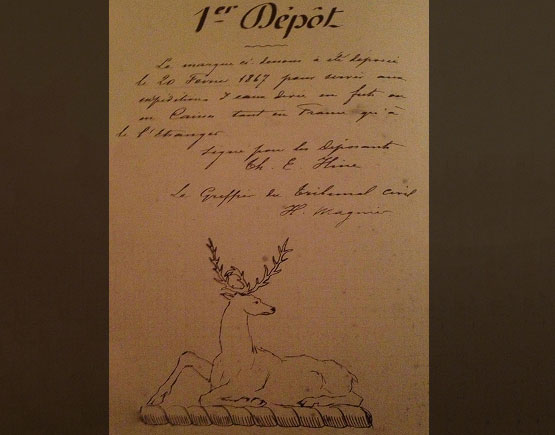 1er Dépôt
La marque ci dessus a été déposée
le 20 Février 1867 pour servir aux
expéditions d'eaux de vie en futs ou
en Caisses tant en France qu'à
l'Etranger
signé pour les Déposants
Th. E. Hine
Le Greffier du Tribunal Civil
H. Magnier